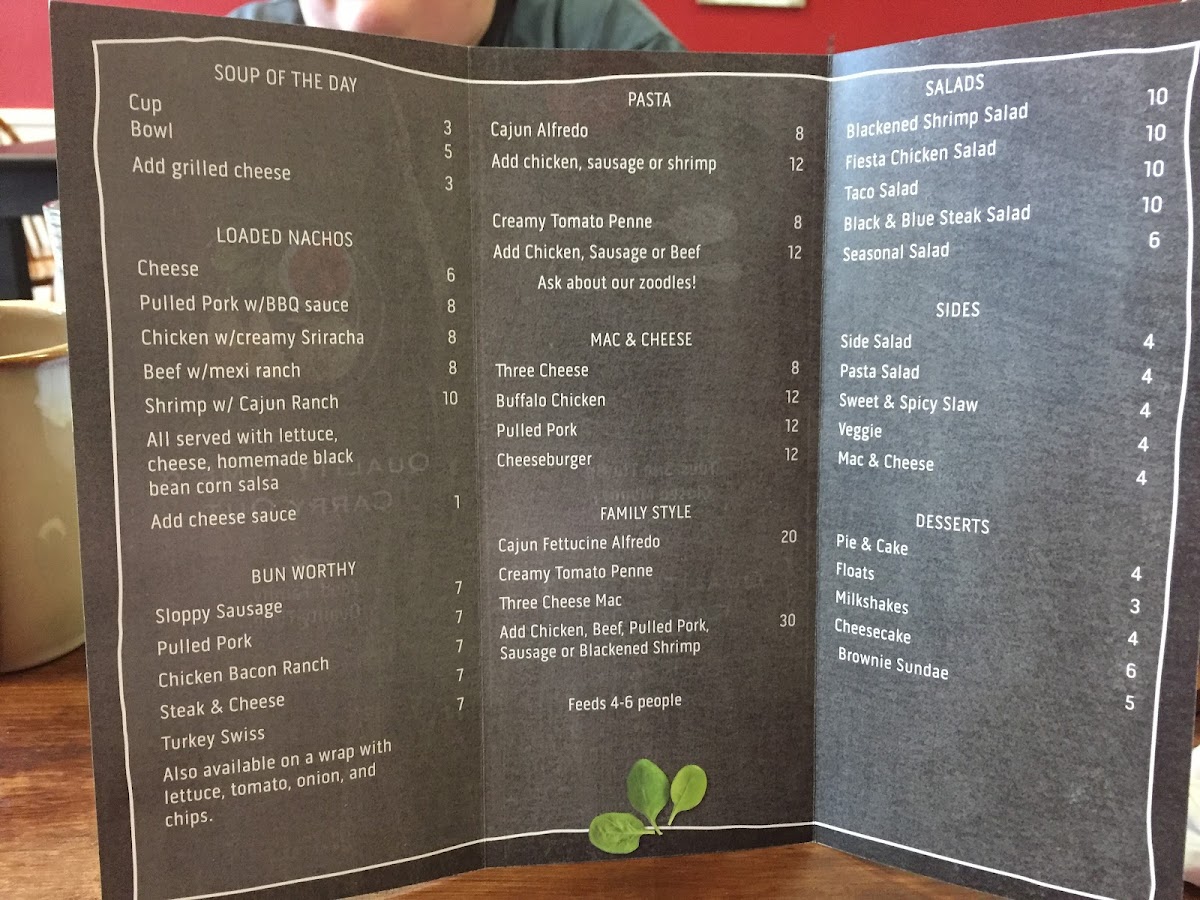 SOUP OF THE DAY
Cup 3
Bowl 5
Add grilled cheese 3
LOADED NACHOS
Cheese 6
Pulled Pork w/BBQ sauce 8
Chicken w/creamy Sriracha 8
Beef w/mexi ranch 8
Shrimp w/ Cajun Ranch 10
All served with lettuce,
cheese, homemade black
bean corn salsa
Add cheese sauce 1
BUN WORTHY
Sloppy Sausage 7
Pulled Pork 7
Chicken Bacon Ranch 7
Steak & Cheese 7
Turkey Swiss 7
Also available on a wrap with
lettuce, tomato, onion, and
chips.
PASTA
Cajun Alfredo 8
Add chicken, sausage or shrimp 12
Creamy Tomato Penne 8
Add Chicken, Sausage or Beef 12
Ask about our zoodles!
MAC & CHEESE
Three Cheese 8
Buffalo Chicken 12
Pulled Pork 12
Cheeseburger 12
FAMILY STYLE
Cajun Fettucine Alfredo 20
Creamy Tomato Penne
Three Cheese Mac
Add Chicken, Beef, Pulled Pork, 30
Sausage or Blackened Shrimp
Feeds 4-6 people
SALADS
Blackened Shrimp Salad 10
Fiesta Chicken Salad 10
Taco Salad 10
Black & Blue Steak Salad 10
Seasonal Salad 6
SIDES
Side Salad 4
Pasta Salad 4
Sweet & Spicy Slaw 4
Veggie 4
Mac & Cheese 4
DESSERTS
Pie & Cake 4
Floats 3
Milkshakes 4
Cheesecake 6
Brownie Sundae 5